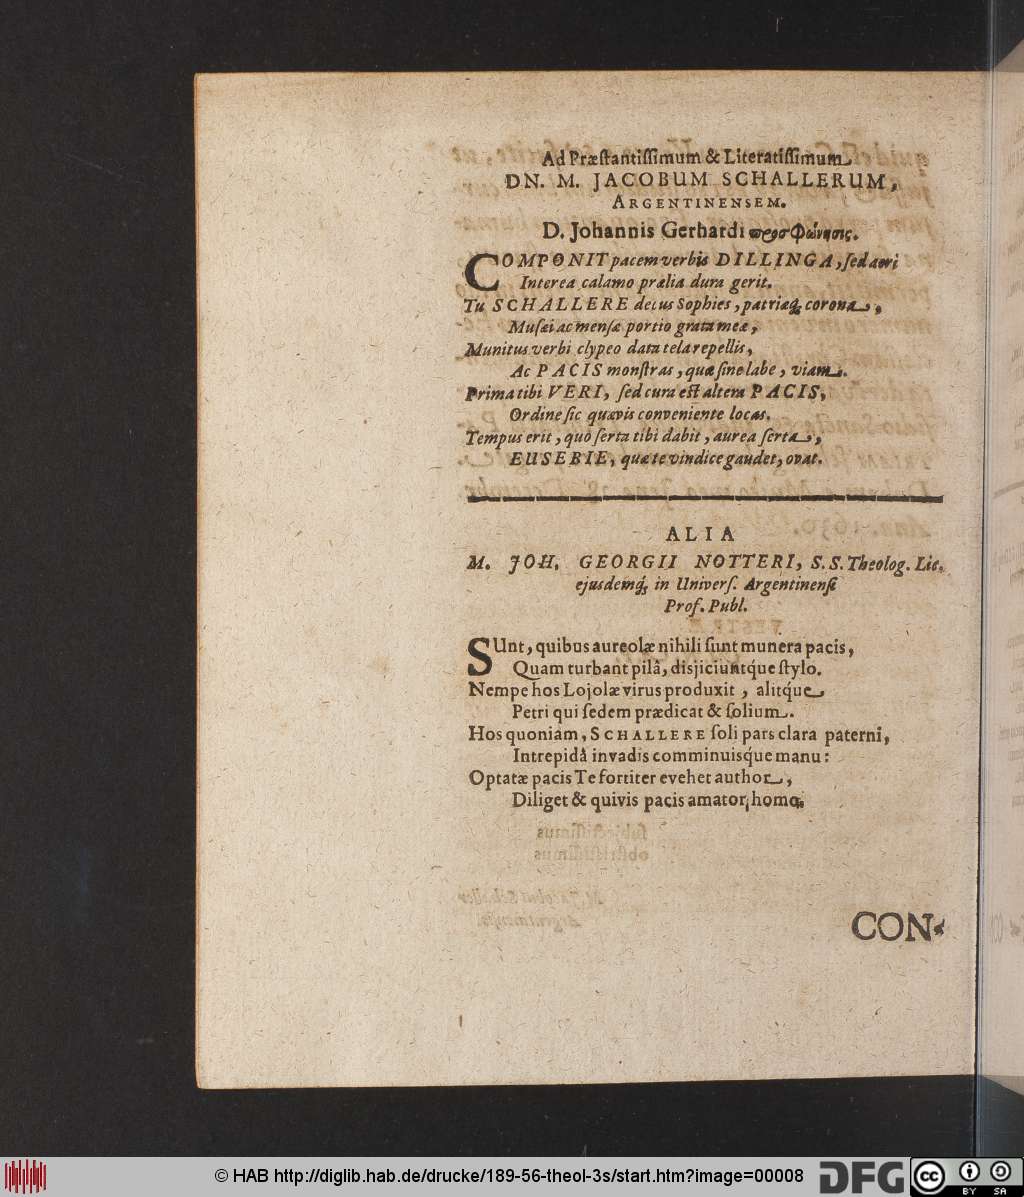 Ad Præſtantiſſimum & Literatiſſimum
DN. M. JACOBUM SCHALLERUM,
ARGENTINENSEM.
D. Johannis Gerhardi προσφώνησις.
COMPONIT pacem verbis DILLINGA, ſed acri
Interea calamo prælia dura gerit.
Tu SCHALLERE decus Sophies, patriæq́; corona,
Muſæi ac menſæ portio grata meæ,
Munitus verbi clypeo data tela repellis,
Ac PACIS monſtras, quæ ſine labe, viam.
Prima tibi VERI, ſed cura eſt altera PACIS,
Ordine ſic quævis conveniente locas.
Tempus erit, quò ſerta tibi dabit, aurea ſerta,
EUSEBIE, quæ te vindice gaudet, ovat.
ALIA
M. JOH. GEORGII NOTTERI, S. S. Theolog. Lic.
ejusdemq́; in Univerſ. Argentinenſi
Prof. Publ.
SUnt, quibus aureolæ nihili ſunt munera pacis,
Quam turbant pilâ, disjiciuntq́ue ſtylo.
Nempe hos Lojolæ virus produxit, alitq́ue
Petri qui ſedem prædicat & ſolium.
Hos quoniam, SCHALLERE ſoli pars clara paterni,
Intrepidâ invadis comminuisq́ue manu:
Optatæ pacis Te fortiter evehet author,
Diliget & quivis pacis amator, homo.
CON-
© HAB http://diglib.hab.de/drucke/189-56-theol-3s/start.htm?image=00008
DFG
cc
BY SA